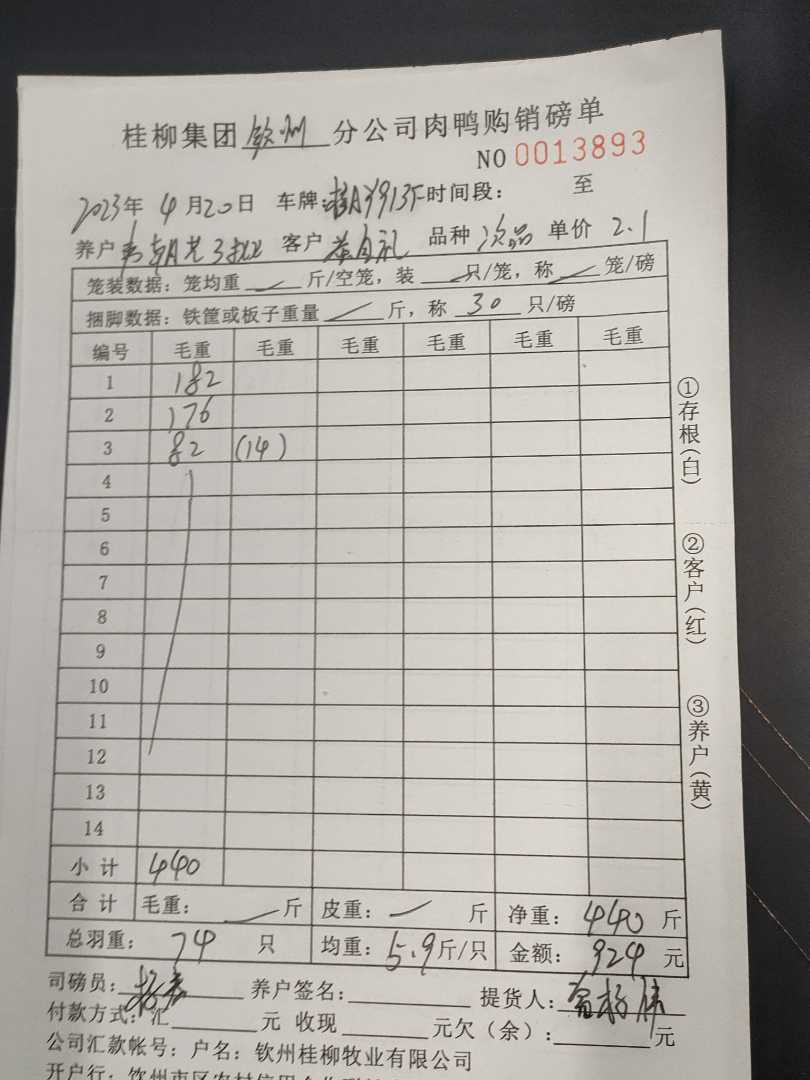 桂柳集团 钦州 分公司肉鸭购销磅单
NO 0013893
2023年 4月20日 车牌: 时间段: 至
养户 客户 品种 次品 单价 2.1
笼装数据: 笼均重 斤/空笼, 装 只/笼, 称 笼/磅
捆脚数据: 铁筐或板子重量 斤, 称 30 只/磅
编号 毛重 毛重 毛重 毛重 毛重 毛重
1 182
2 176
3 82 (14)
4
5
6
7
8
9
10
11
12
13
14
小计 440
合计 毛重: 斤 皮重: 斤 净重: 440 斤
总羽重: 74 只 均重: 5.9斤/只 金额: 924 元
司磅员: 养户签名: 提货人:
付款方式: 汇 元 收现 元欠(余): 元
公司汇款帐号: 户名: 钦州桂柳牧业有限公司
开户行: 钦州市区农村信用合作联社
①存根(白)
②客户(红)
③养户(黄)